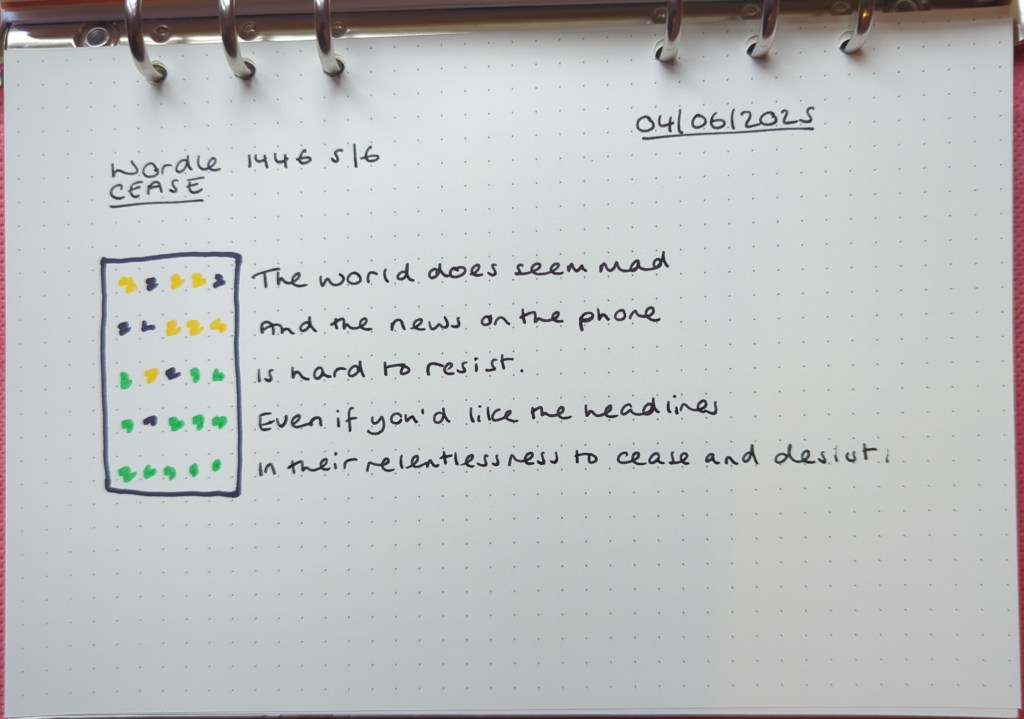 04/06/2025
Wordle 1446 5/6
CEASE
The world does seem mad
And the news on the phone
is hard to resist.
Even if you'd like the headlines
in their relentlessness to cease and desist.